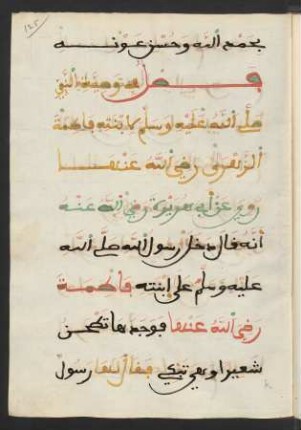 ١٤٢
بحمد الله وحسن عونه
فصل في وصية النبي
صلى الله عليه وسلم لابنته فاطمة
الزهراء رضي الله عنها
روي عن أبي هريرة رضي الله عنه
أنه قال دخل رسول الله صلى الله
عليه وسلم على ابنته فاطمة
رضي الله عنها فوجدها تطحن
شعيرا وهي تبكي فقال لها رسول